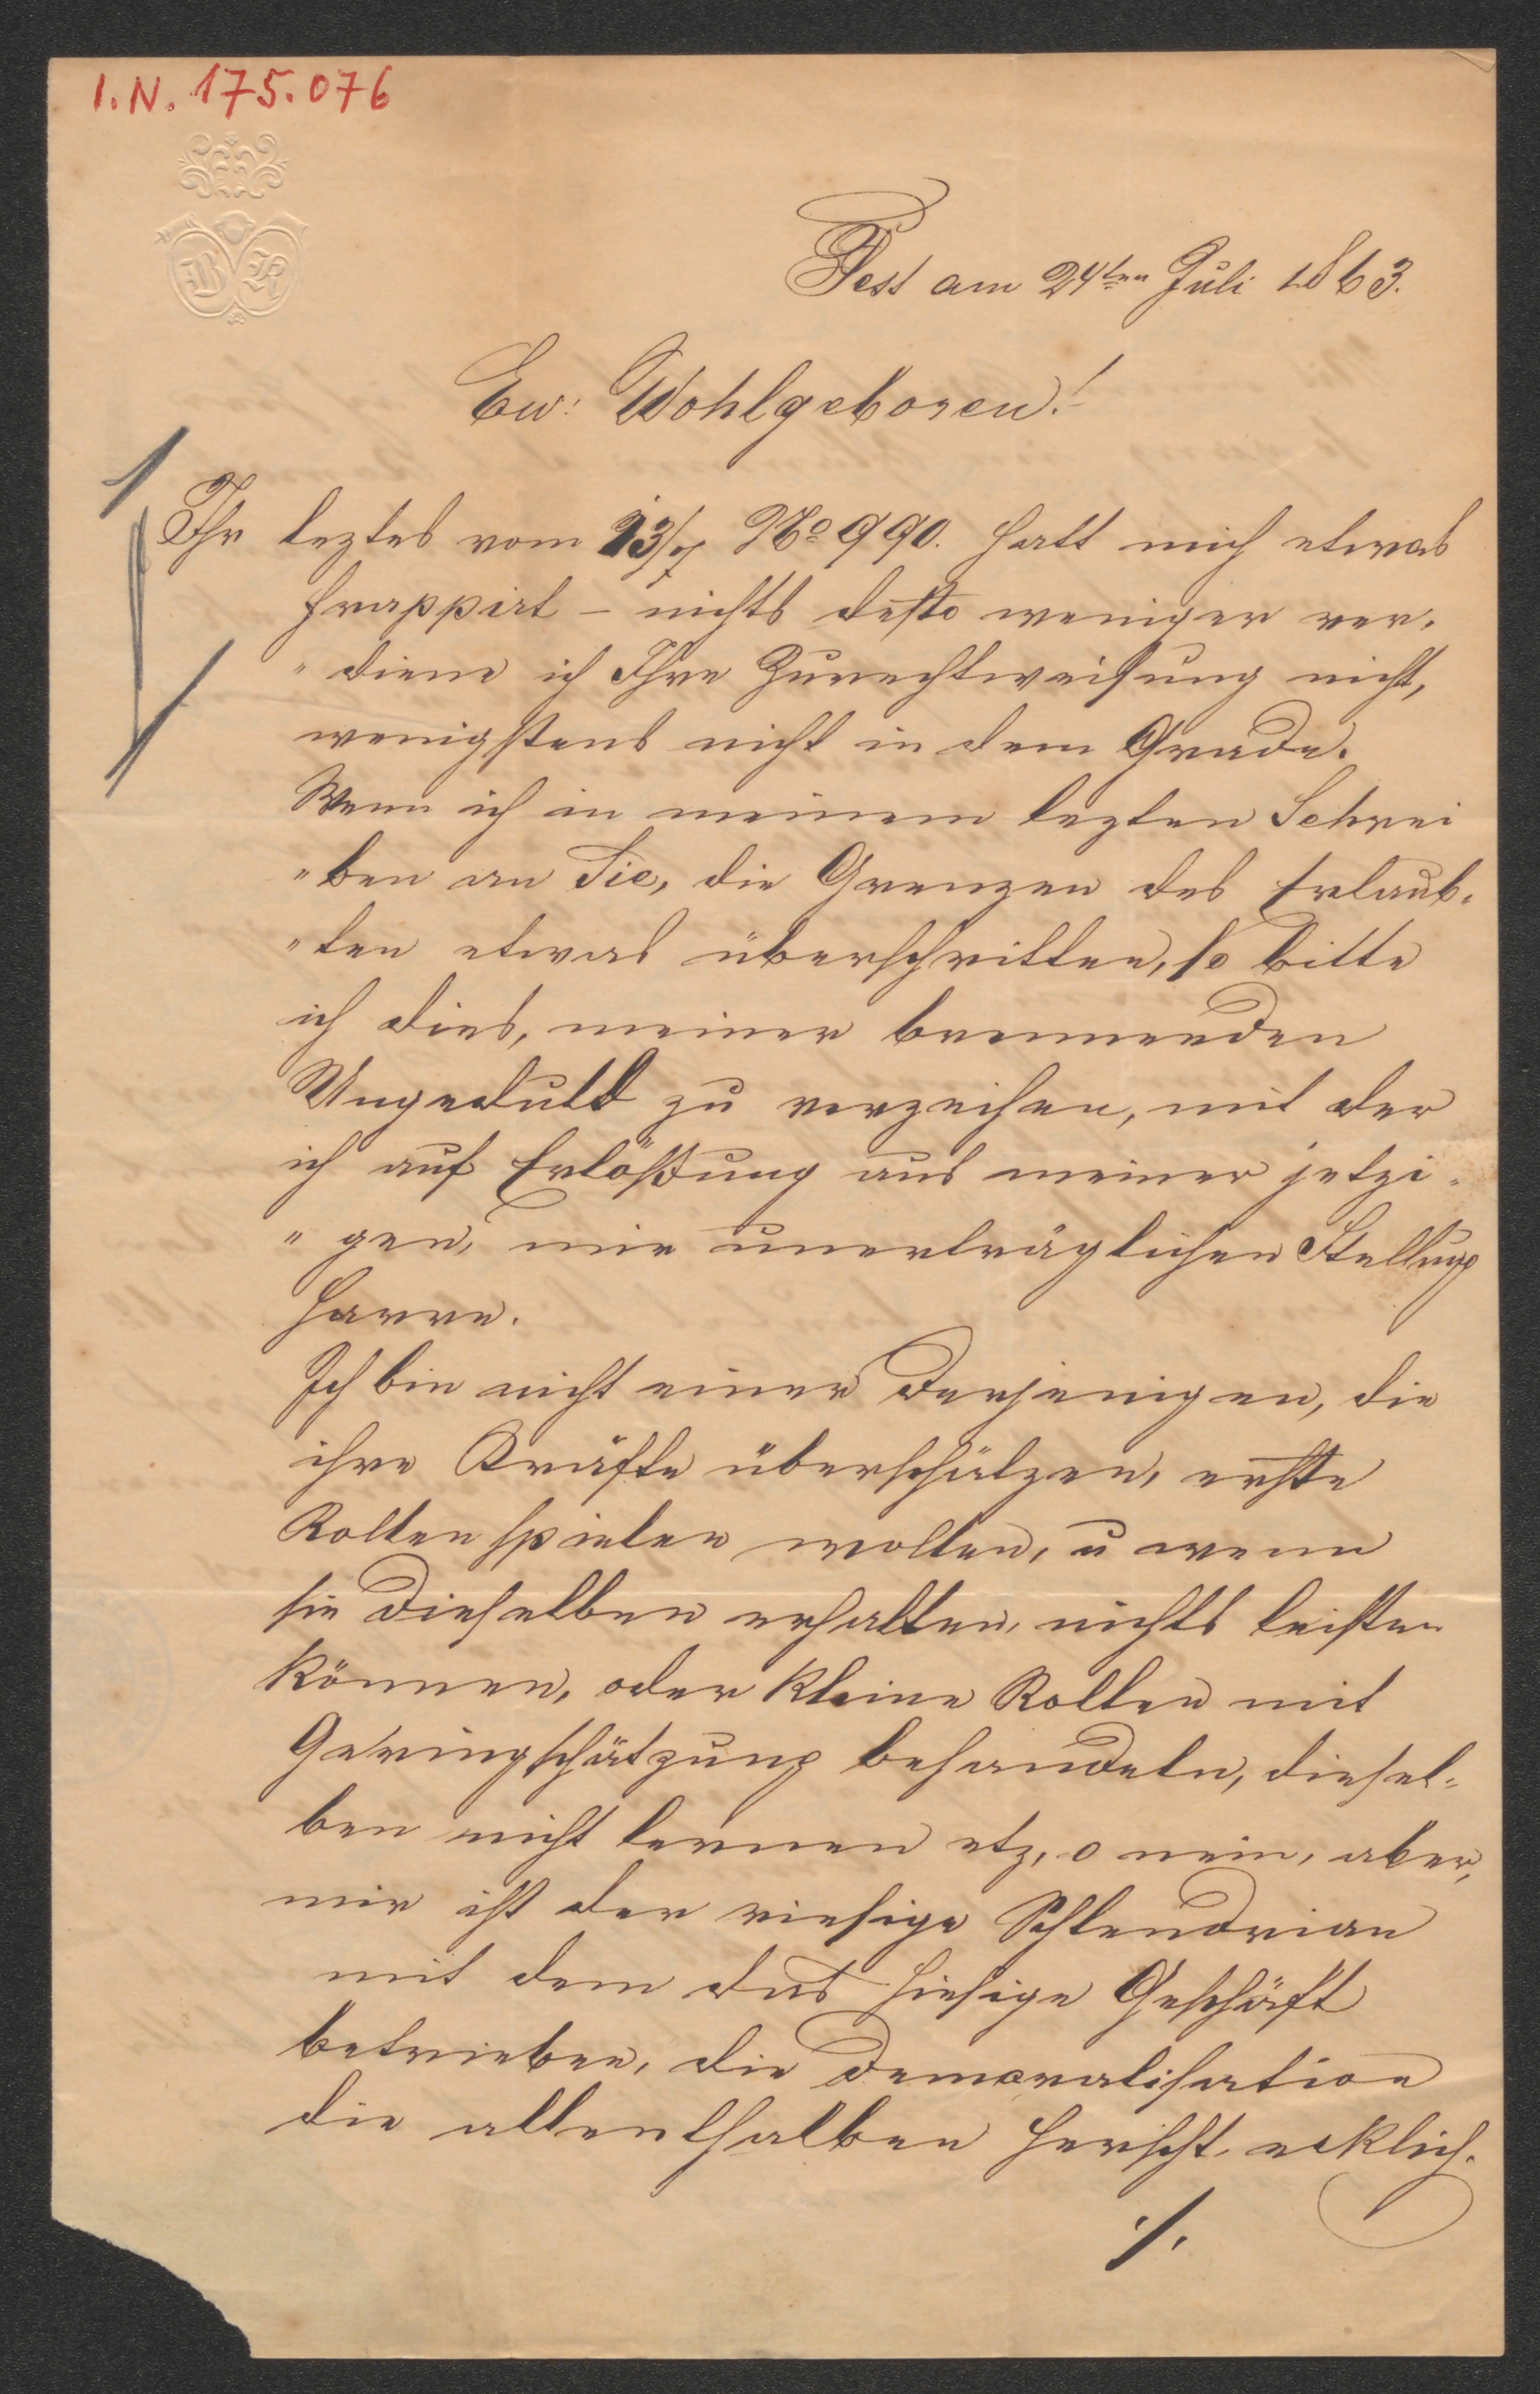 I.N. 175.076
B K
Pest am 24ten Juli 1863.
Ew: Wohlgeboren!
Ihr leztes vom 23/7 No 990. hatt mich etwas
frappirt – nichts desto weniger ver„
„diene ich Ihre Zurechtweisung nicht,
wenigstens nicht in dem Grade.
Wenn ich in meinem lezten Schrei
„ben an Sie, die Grenzen des Erlaub„
„ten etwas überschritten, so bitte
ich dies, meiner brennenden
Ungeduld zu verzeihen, mit der
ich auf Erlößung aus meiner jetzi„
„gen, mir unerträglichen Stellung
harre.
Ich bin nicht einer Derjenigen, die
ihre Kräfte überschätzen, erste
Rollen spielen wollen, u wenn
sie Dieselben erhalten, nichts leisten
können, oder kleine Rollen mit
Geringschätzung behandeln, diesel„
ben nicht lernen etz, o nein, aber,
mir ist der riesige Schlendrian
mit dem das hiesige Geschäft
betrieben, die Demoralisation
die allenthalben herscht, ecklich.
./.